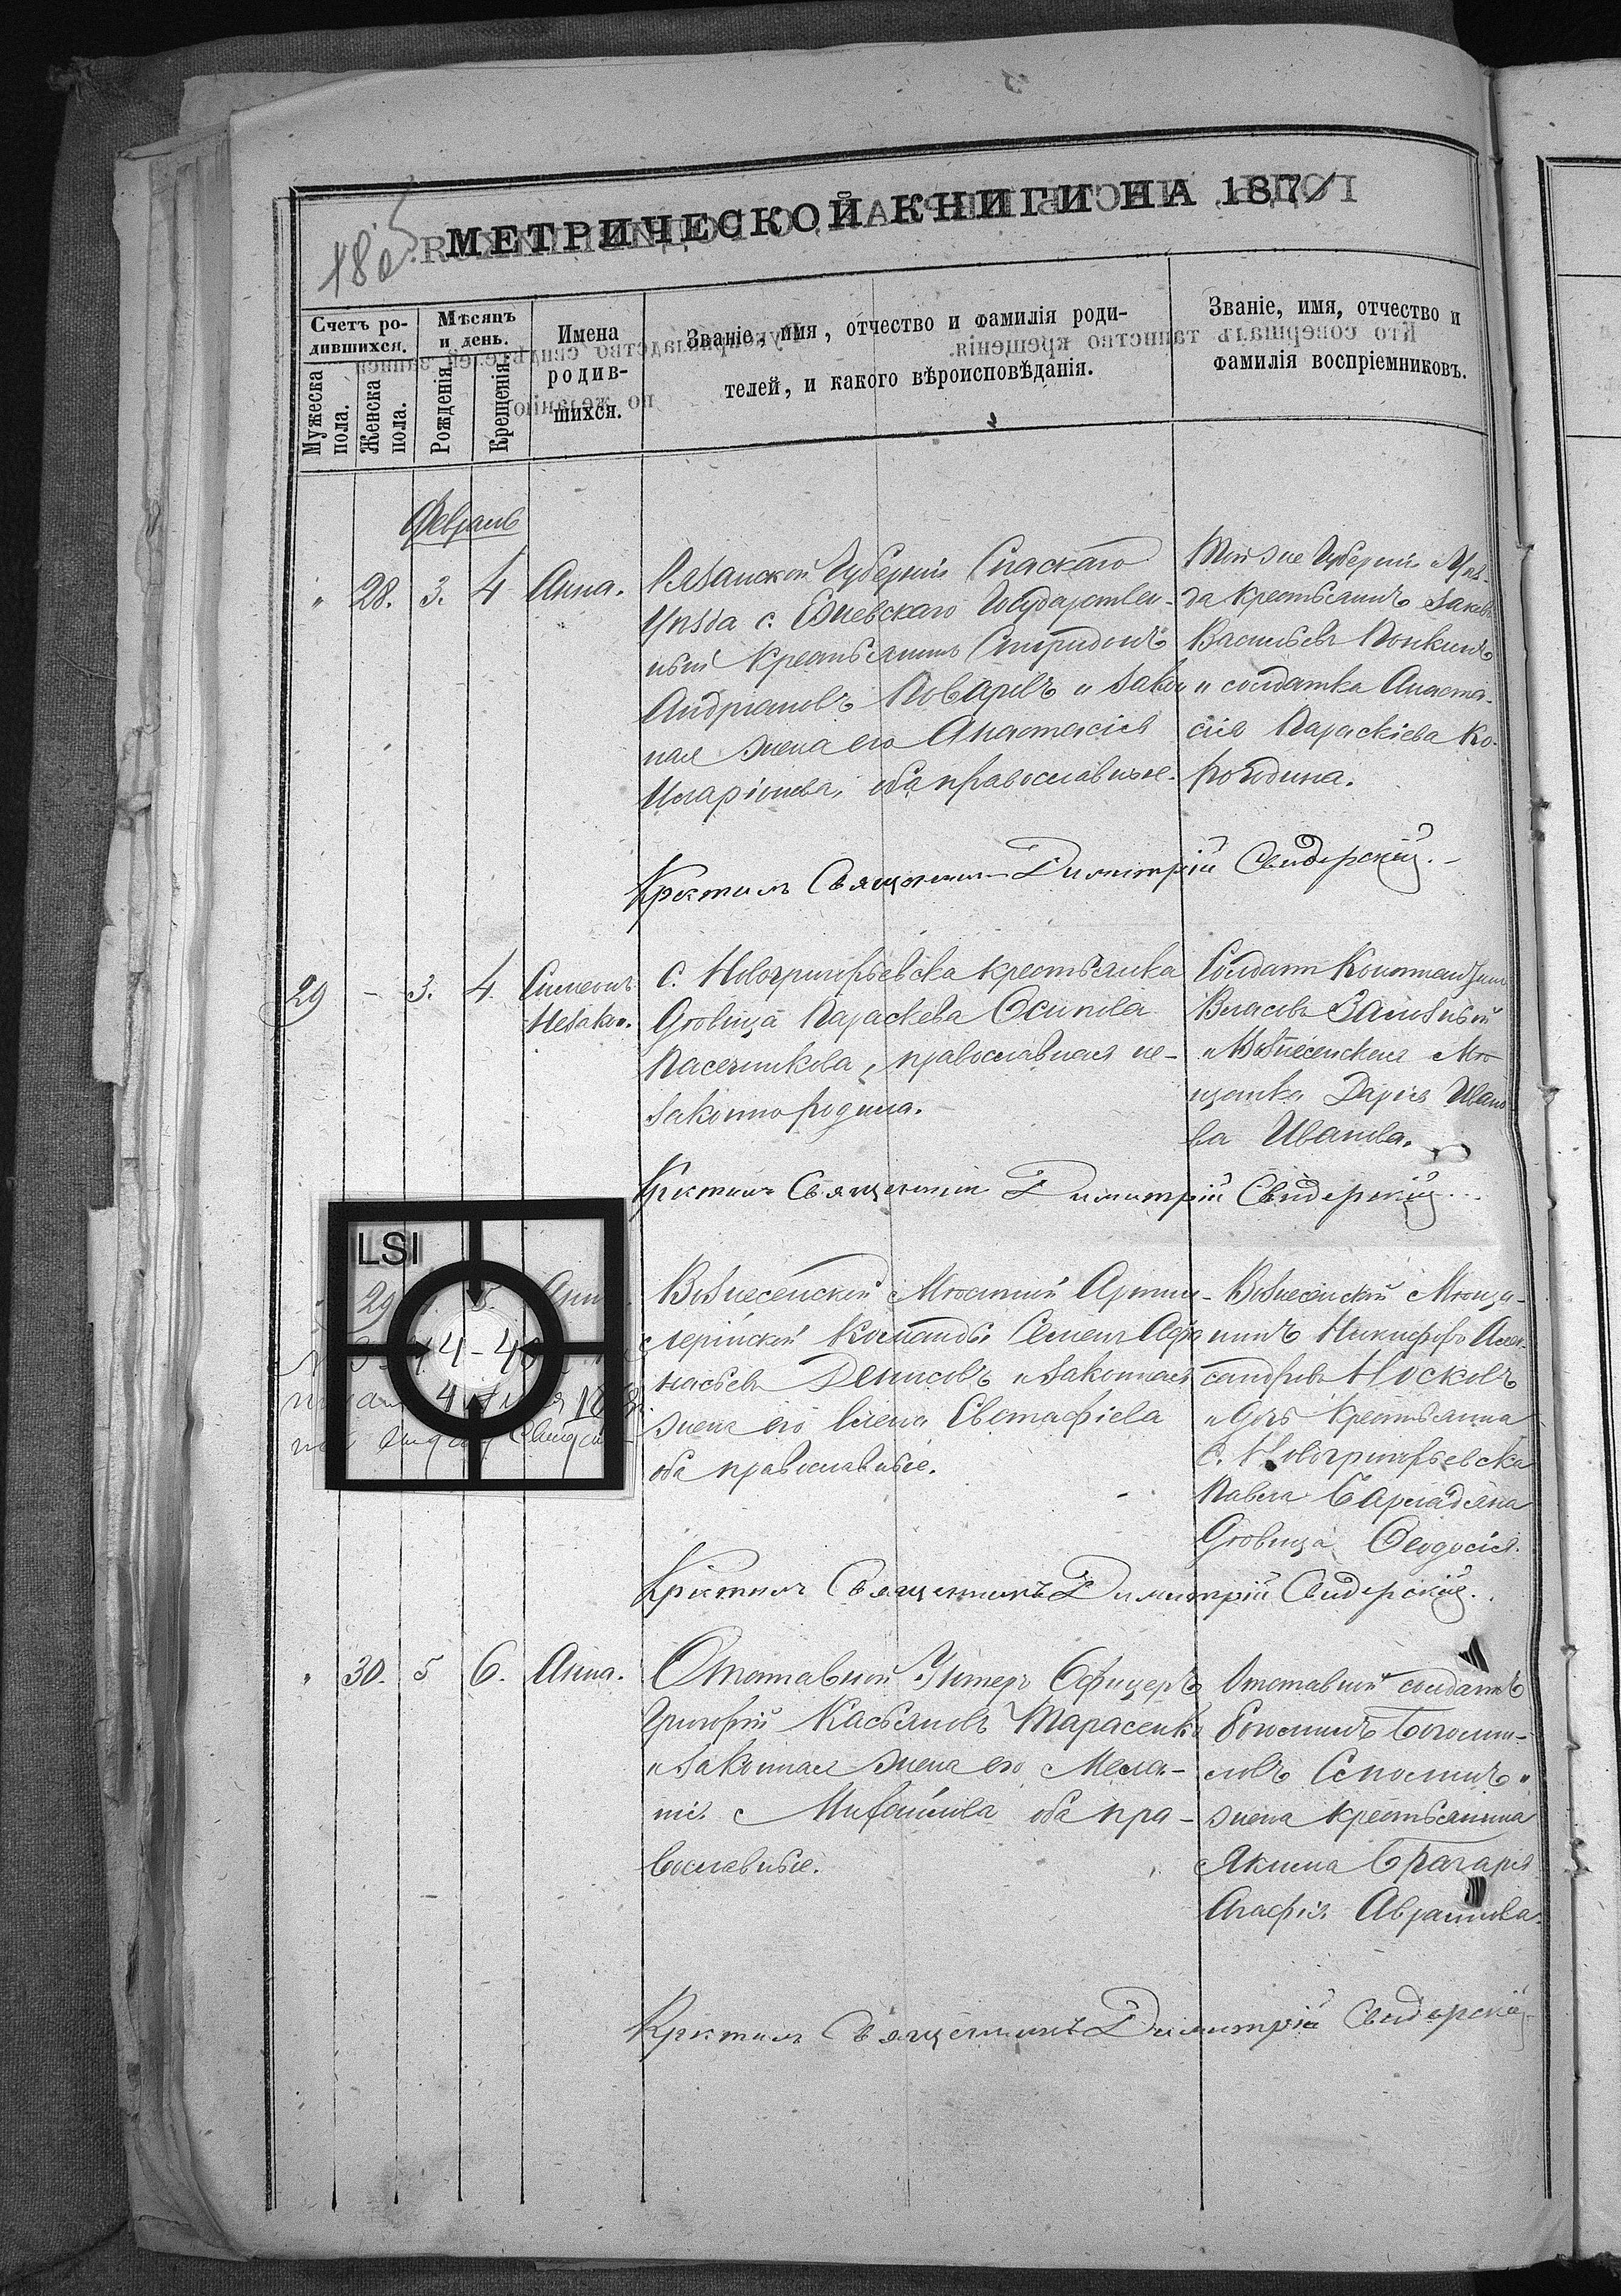 МЕТРИЧЕСКОЙ КНИГИ НА 187
Счетъ ро-
дившихся.
Мужеска
пола.
Женска
пола.
Мѣсяцъ
и день.
Рожденія.
Крещенія.
Имена
родив-
шихся.
Званіе, имя, отчество и фамилія роди-
телей, и какого вѣроисповѣданія.
Званіе, имя, отчество и
фамилія воспріемниковъ.
Февраль
" 28. 3. 4 Анна.
Рязанской Губерніи Спаскаго
Уѣзда с. Государствен-
ный крестьянинъ Спиридонъ
Андріановъ Поваровъ и закон
ная жена его Анастасія
Иларіонова, оба православные.
Той же Губерніи Уѣз-
да крестьянинъ Яковъ
Васильевъ
и солдатка Анаста-
сія Параскіева Ко-
Крестилъ Священникъ Димитрій Свидерскій.
29 - 3. 4. Симеонъ
Незакон.
с. Новогригорьевска крестьянка
Дѣвица Параскева Осипова
Пасечникова, православная не-
законно родила.
Солдатъ
Власовъ
и Вознесенская Мѣ
щанка Дарія Ивано
ва Иванова.
Крестилъ Священникъ Димитрій Свидерскій
LSI
29
Вознесенской Мѣстной Артил-
лерійской команды Семенъ Афа
насьевъ Денисовъ и законная
жена его Елена Евстафіева
оба православные.
Вознесенскій Мѣща-
нинъ Никифоръ Алек-
сандровъ Носковъ
и дочь крестьянина
с. Новогригорьевска
Павла
Дѣвица Ѳеодосія.
Крестилъ Священникъ Димитрій Свидерскій.
" 30. 5 6. Анна.
Отставной Унтеръ Офицеръ
Григорій Касьяновъ Тарасенко
и законная жена его Мела-
нія Михайлова оба пра-
вославные.
Отставной солдатъ
жена крестьянина
Якима
Агафія Аврамова.
Крестилъ Священникъ Димитрій Свидерскій